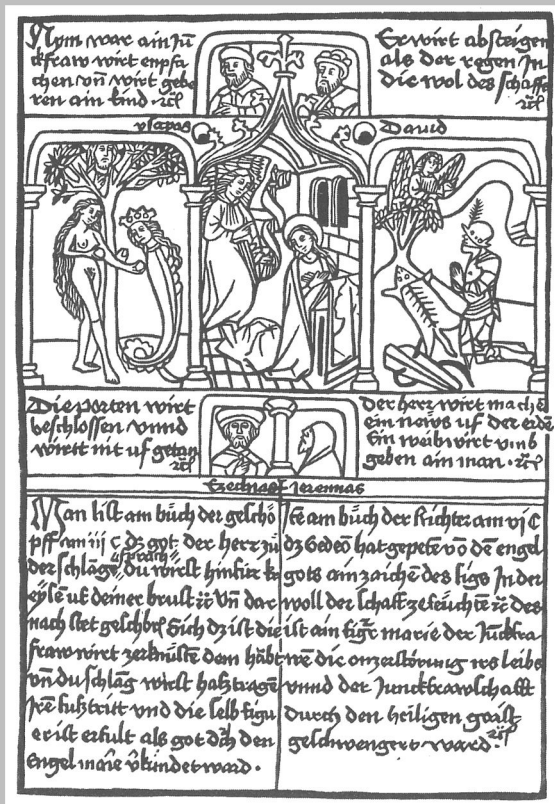 Nym war ain Jũ
ckfraw wirt enpfa
chen vñ wirt gebe
ren ain kind ·ꝛc̃
Er wirt absteigen
als der regen Jn
die wol des schaffs
ꝛc̃
ysayas
David
Die porten wirt
beschlossen vnnd
wirtt nit uf getan
ꝛc̃
der herꝛ wirt machẽ
ein neẅs uf der erdẽ
Ein weib wirt vmb
geben ain man ·ꝛc̃
Ezechiel
Jeremias
Man list am bůch der geschö
pff am iij c dz got der herꝛ zů
der schlãge sprach du wirst hinfür
nach stet geschribẽ Sich dz ist die
fraw wirt zerknüsten dem häbt
vñ du schlãg wirst haß tragẽ
Jrẽ fußtritt vnd die selb figu
er ist erfült als got dch den
Engel marie v̈kündet ward ·
am bůch der Richter am vj C
dz Gedeõ hat gepetẽ võ dẽ engel
gots ain zaichẽ des sigs Jn der
woll der schaff zefeüchtẽ ꝛc des
ist ain figr marie der Junckfra
wẽ die onzerstörung irs leibs
vnnd der Junckfrawschafft
durch den heiligen gaist
geschwengert ward · ꝛc̃